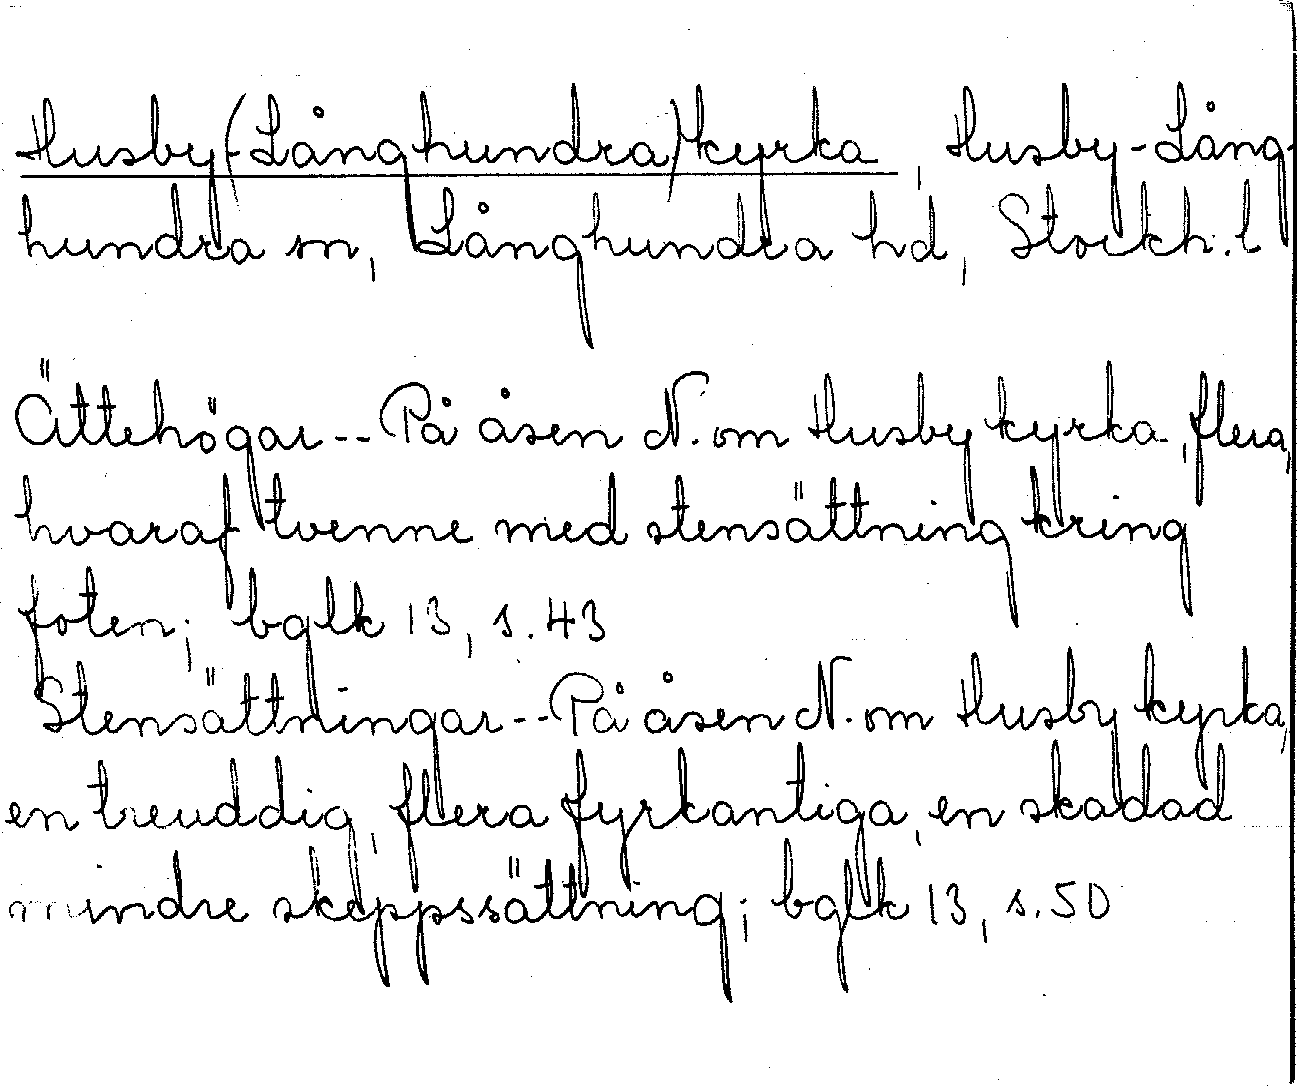 Husby-(Långhundra) kyrka, Husby-Lång-
hundra sn, Långhundra hd, Stockh. l
Ättehögar -- På åsen N. om Husby kyrka, flera,
hvaraf tvenne med stensättning kring
foten; bglk 13, s. 43
Stensättningar -- På åsen N. om Husby kyrka,
en treuddig, flera fyrkantiga, en skadad
mindre skeppssättning; bglk 13, s. 50